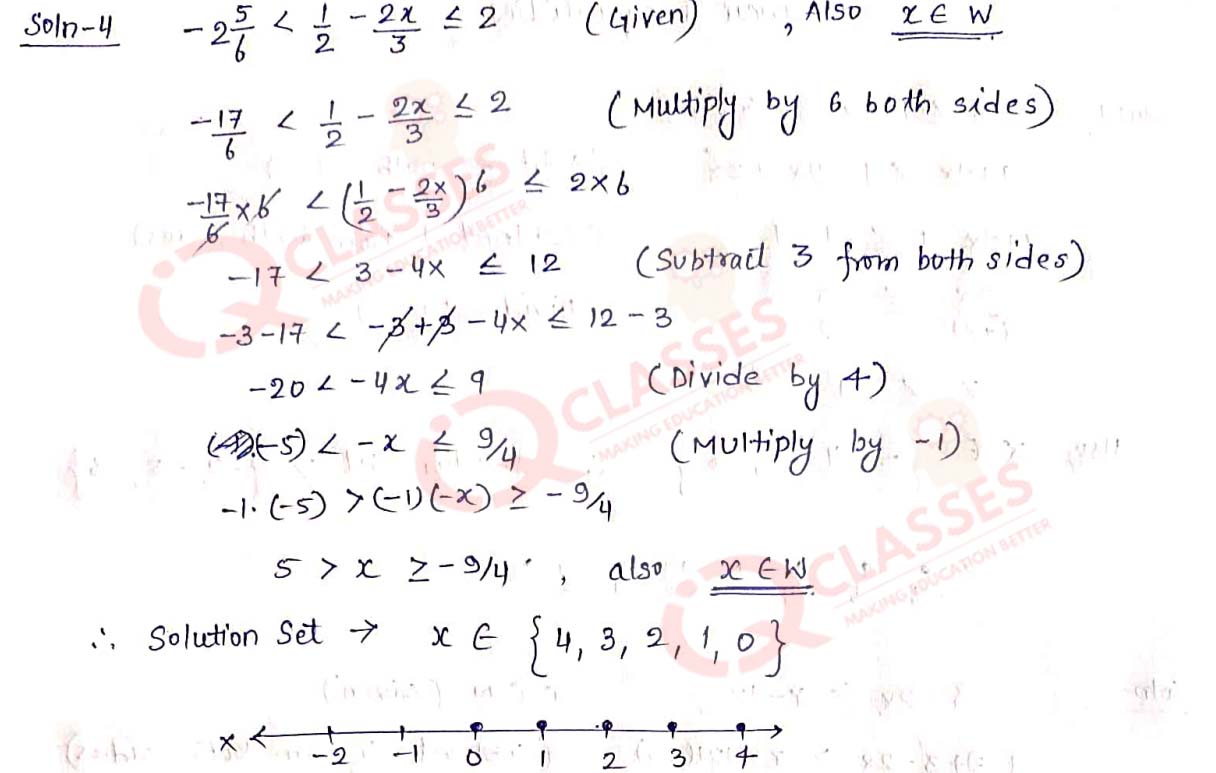 Soln-4 -2 5/6 < 1/2 - 2x/3 ≤ 2 (Given) , Also x ∈ W
-17/6 < 1/2 - 2x/3 ≤ 2 (Multiply by 6 both sides)
-17/6 × 6 < (1/2 - 2x/3) 6 ≤ 2×6
-17 < 3 - 4x ≤ 12 (Subtract 3 from both sides)
-3-17 < -3+3 - 4x ≤ 12 - 3
-20 < -4x ≤ 9 (Divide by 4)
(-5) < -x ≤ 9/4 (Multiply by -1)
-1·(-5) > (-1)(-x) ≥ -9/4
5 > x ≥ -9/4 , also x ∈ W
∴ Solution Set → x ∈ {4, 3, 2, 1, 0}
x -2 -1 0 1 2 3 4
iQ CLASSES
MAKING EDUCATION BETTER
iQ CLASSES
MAKING EDUCATION BETTER
iQ CLASSES
MAKING EDUCATION BETTER